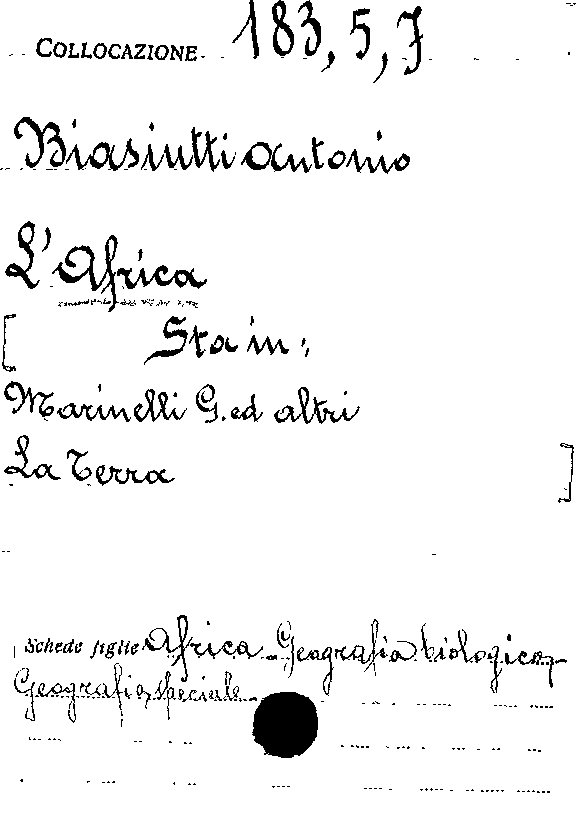 COLLOCAZIONE 183, 5, 7
Biasiutti Antonio
L'Africa
[ Sta in:
Marinelli G. ed altri
La Terra ]
Schede figlie Africa - Geografia biologica,
Geografia speciale